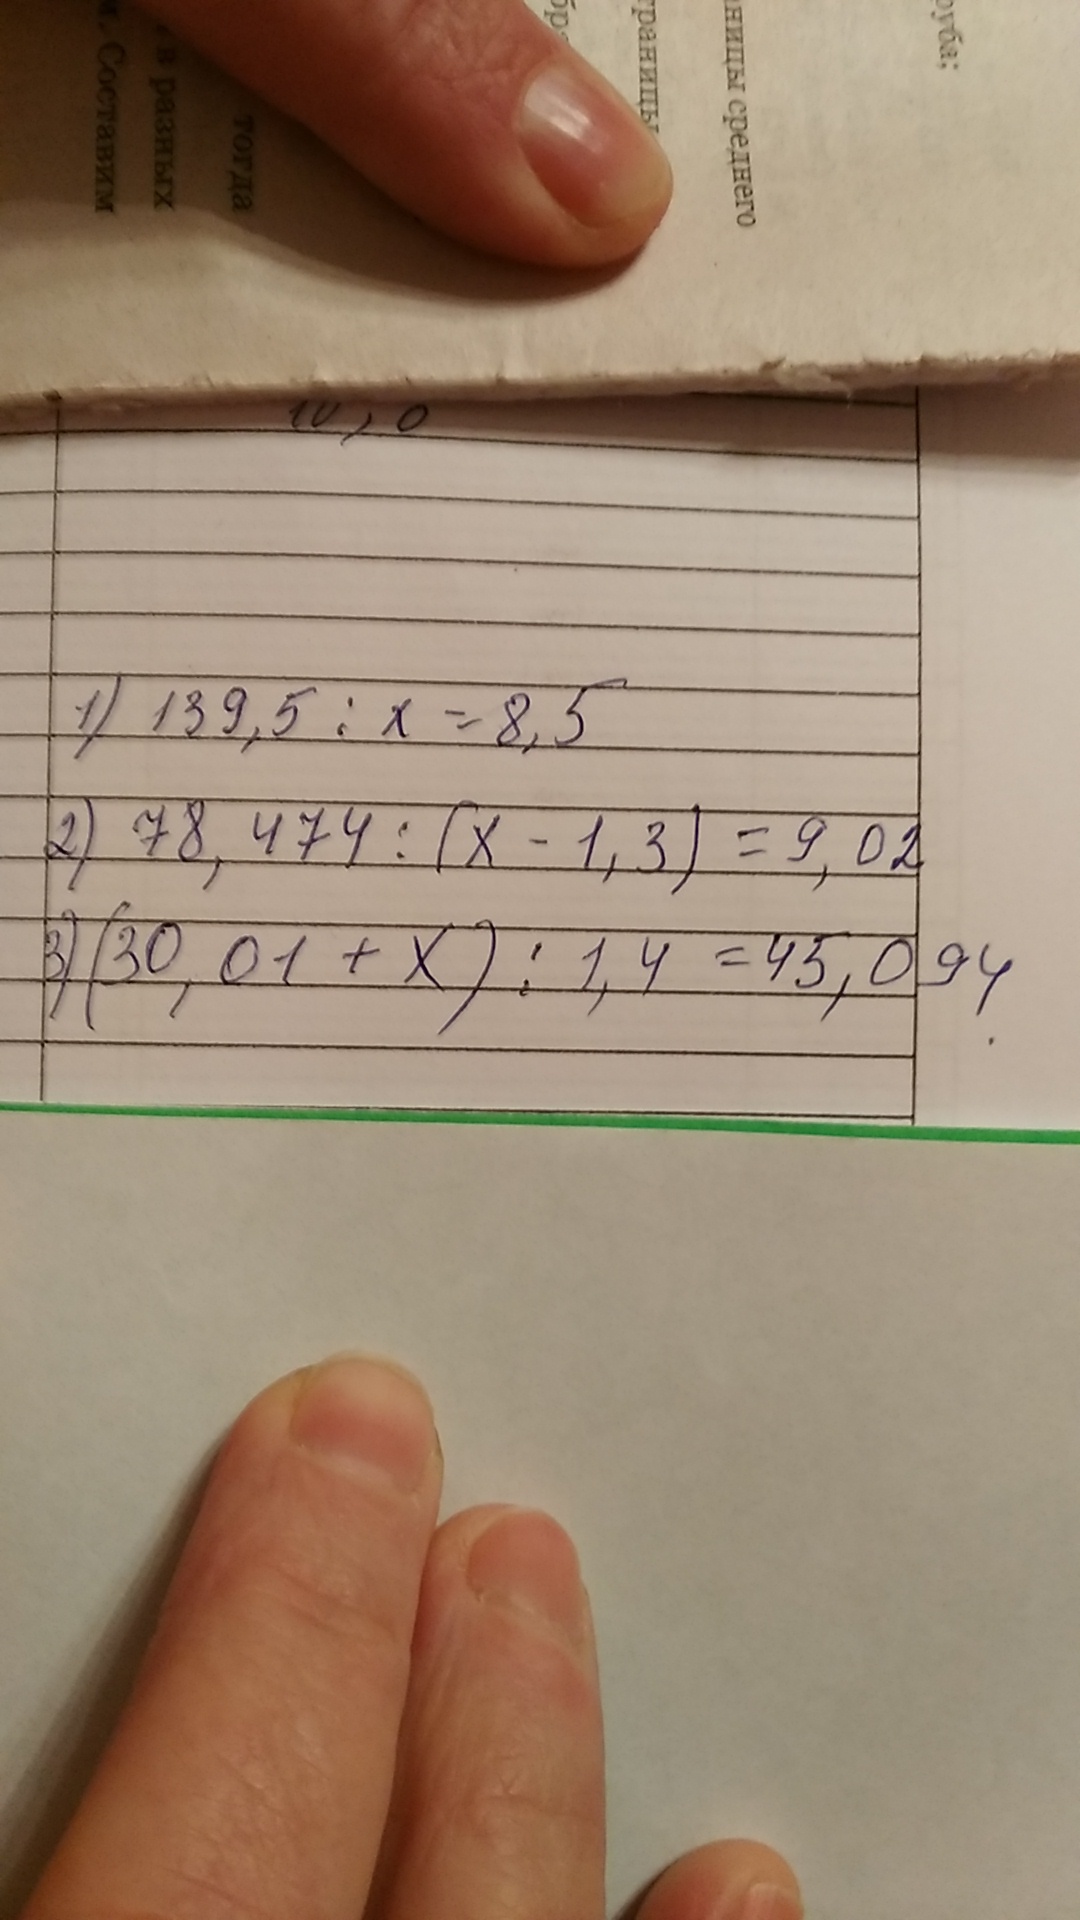 тогда
в разных
Составим
границы
ницы среднего
руба;
10,0
1) 139,5 : x = 8,5
2) 78,474 : (x - 1,3) = 9,02
3) (30,01 + x) : 1,4 = 45,094